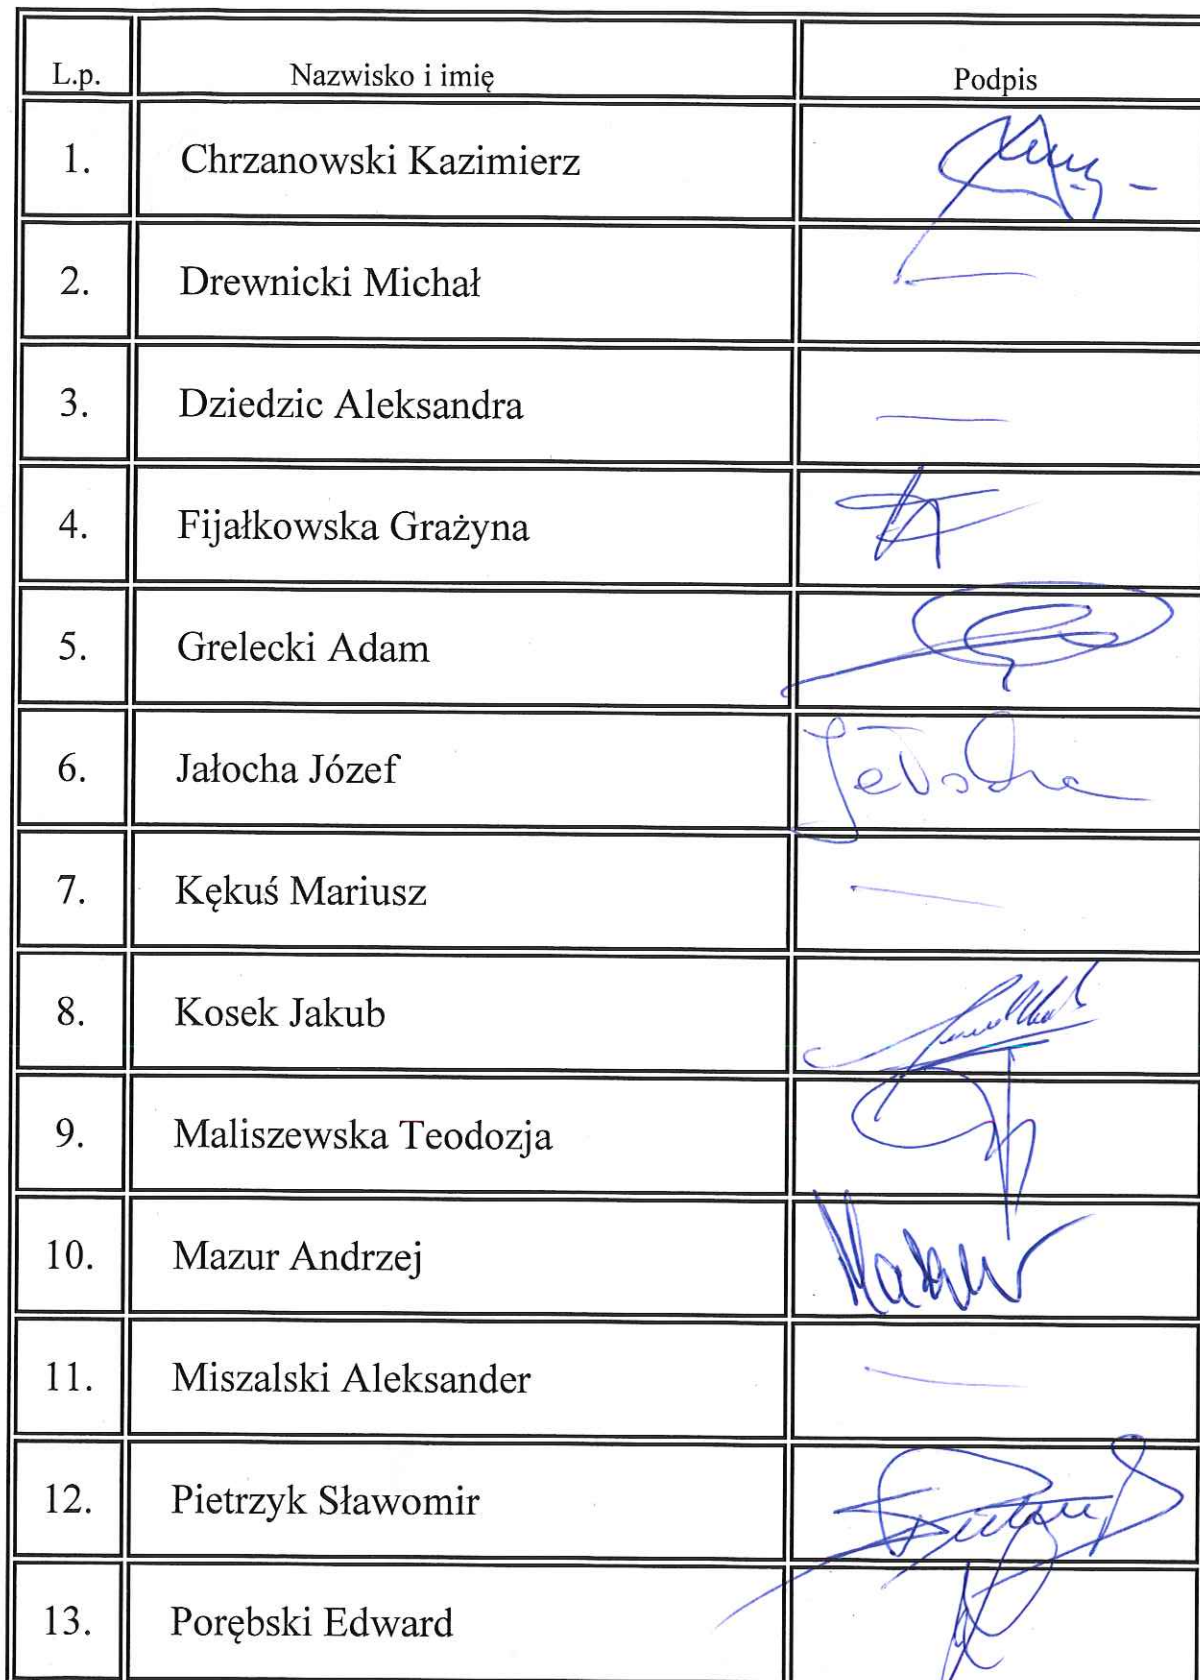 L.p. Nazwisko i imię Podpis
1. Chrzanowski Kazimierz
2. Drewnicki Michał —
3. Dziedzic Aleksandra —
4. Fijałkowska Grażyna
5. Grelecki Adam
6. Jałocha Józef Jałocha
7. Kękuś Mariusz —
8. Kosek Jakub
9. Maliszewska Teodozja
10. Mazur Andrzej Mazur
11. Miszalski Aleksander —
12. Pietrzyk Sławomir
13. Porębski Edward